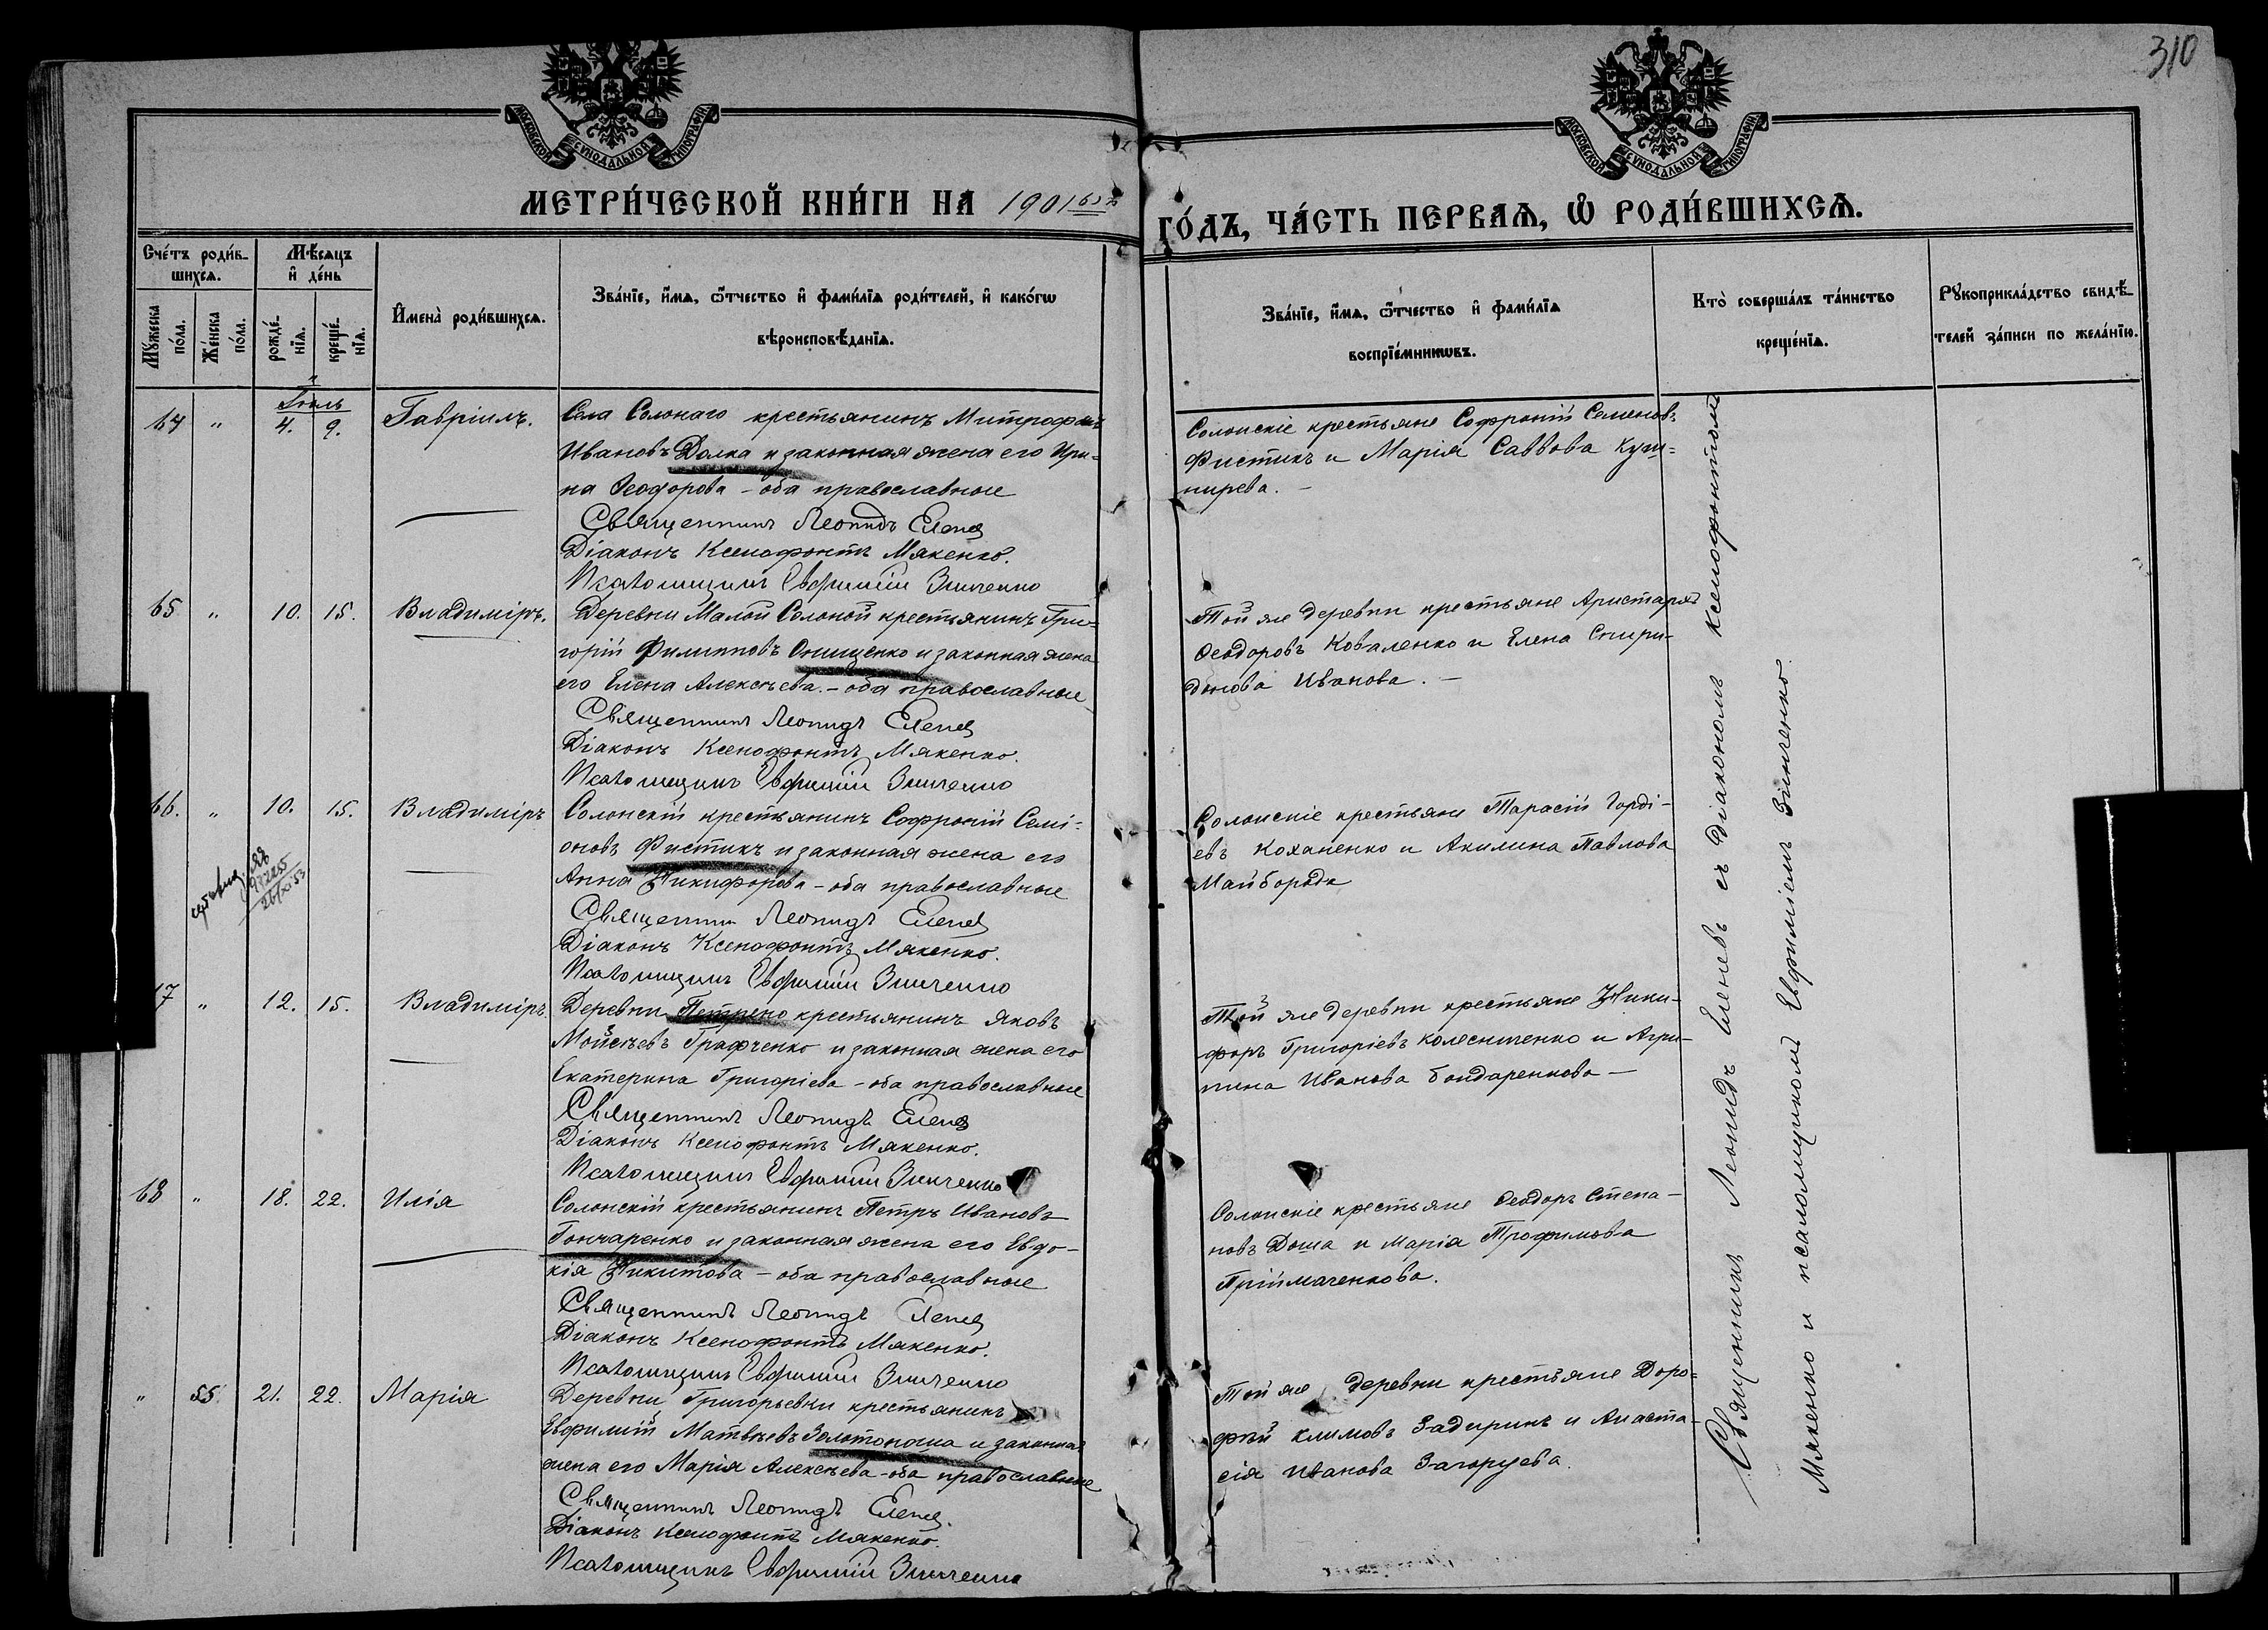 310
МОСКОВСКОЙ СѴНОДАЛЬНОЙ ТИПОГРАФІИ
МОСКОВСКОЙ СѴНОДАЛЬНОЙ ТИПОГРАФІИ
МЕТРИ́ЧЕСКОЙ КНИ́ГИ НА 1901
ГО́ДЪ, ЧА́СТЬ ПЕРВАѦ, Ѡ РОДИ́ВШИХСѦ.
Сче́тъ роди́в-
шихсѧ.
Мѣ́сѧцъ
и҆ де́нь
Мꙋ́жеска по́ла.
Же́нска по́ла.
рожде́-
нїѧ.
креще́-
нїѧ.
И҆мена̀ роди́вшихсѧ.
Зва́нїе, и҆́мѧ, ѻ҆́тчество и҆ фами́лїѧ роди́телей, и҆ како́гѡ
вѣроисповѣ́данїѧ.
Зва́нїе, и҆́мѧ, ѻ҆́тчество и҆ фами́лїѧ
воспрїе́мникѡвъ.
Кто̀ соверша́лъ та́инство
креще́нїѧ.
Рꙋкоприкла́дство свидѣ́-
телей за́писи по жела́нїю.
Іюль
64 " 4. 9. Гавріилъ.
Села Солонаго крестьянинъ Митрофанъ
Ивановъ Долка и законная жена его Ири-
на Ѳеодорова - оба православные
Священникъ Леонидъ Еленевъ
Діаконъ Ксенофонтъ Мякенко.
Псаломщикъ Евфимій Зинченко
Солонскіе крестьяне Софроній Семеновъ
Фистикъ и Марія Саввова Куш-
нирева. -
65 " 10. 15. Владиміръ.
Деревни Малой Солоной крестьянинъ Гри-
горій Филипповъ Онищенко и законная жена
его Елена Алексѣева. - оба православные
Священникъ Леонидъ Еленевъ
Діаконъ Ксенофонтъ Мякенко.
Псаломщикъ Евфимій Зинченко
Той же деревни крестьяне Аристархъ
Ѳеодоровъ Коваленко и Елена Спири-
донова Иванова. -
66. " 10. 15. Владиміръ
Солонскій крестьянинъ Софроній Семі-
оновъ Фистикъ и законная жена его
Анна Никифорова - оба православные
Священникъ Леонидъ Еленевъ
Діаконъ Ксенофонтъ Мякенко.
Псаломщикъ Евфимій Зинченко
Солонскіе крестьяне Тарасій Горді-
евъ Коханенко и Акилина Павлова
Майборода
7 " 12. 15. Владиміръ
Деревни Петрено крестьянинъ Яковъ
Мойсѣевъ Графченко и законная жена его
Екатерина Григоріева - оба православные
Священникъ Леонидъ Еленевъ
Діаконъ Ксенофонтъ Мякенко.
Псаломщикъ Евфимій Зинченко
Той же деревни крестьяне Ники-
форъ Григоріевъ Колесниченко и Агри-
пина Иванова Бондаренкова -
68 " 18. 22. Илія
Солонскій крестьянинъ Петръ Ивановъ
Гончаренко и законная жена его Евдо-
кія Никитова - оба православные
Священникъ Леонидъ Еленевъ
Діаконъ Ксенофонтъ Мякенко.
Псаломщикъ Евфимій Зинченко
Солонскіе крестьяне Ѳеодоръ Степа-
новъ Доша и Марія Трофимова
Пріймаченкова.
" 55 21. 22. Марія
Деревни Григорьевки крестьянинъ
Евфимій Матвѣевъ Золотоноша и законная
жена его Марія Алексѣева - оба православные
Священникъ Леонидъ Еленевъ.
Діаконъ Ксенофонтъ Мякенко.
Псаломщикъ Евфимій Зинченко
Той же деревни крестьяне Доро-
фей Климовъ Задиринъ и Анаста-
сія Иванова Загоруева.
Священникъ Леонидъ Еленевъ съ діакономъ Ксенофонтомъ
Мякенко и псаломщикомъ Евфиміемъ Зинченко.